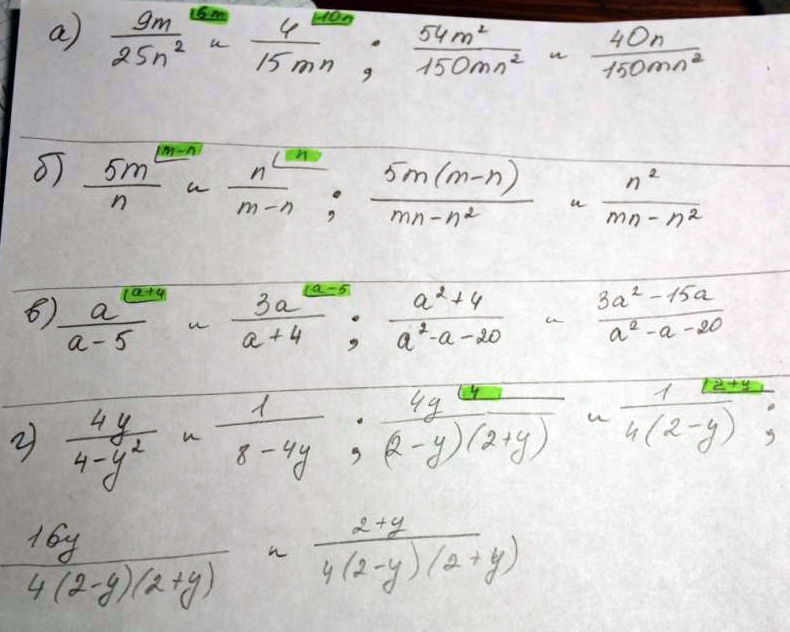 а) 9m/25n² ⌊6m и 4/15mn ⌊10n ; 54m²/150mn² и 40n/150mn²
б) 5m/n ⌊m-n и n/m-n ⌊n ; 5m(m-n)/mn-n² и n²/mn-n²
в) a/a-5 ⌊a+4 и 3a/a+4 ⌊a-5 ; a²+4/a²-a-20 и 3a²-15a/a²-a-20
г) 4y/4-y² и 1/8-4y ; 4y/(2-y)(2+y) ⌊4 и 1/4(2-y) ⌊2+y ;
16y/4(2-y)(2+y) и 2+y/4(2-y)(2+y)